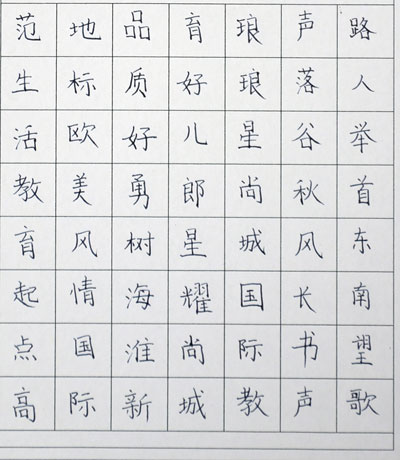 路人举首东南望歌
声落谷秋风长书声
琅琅星尚城国际教
育好儿郎星耀尚城
品质好勇树海淮新
地标欧美风情国际
范生活教育起点高